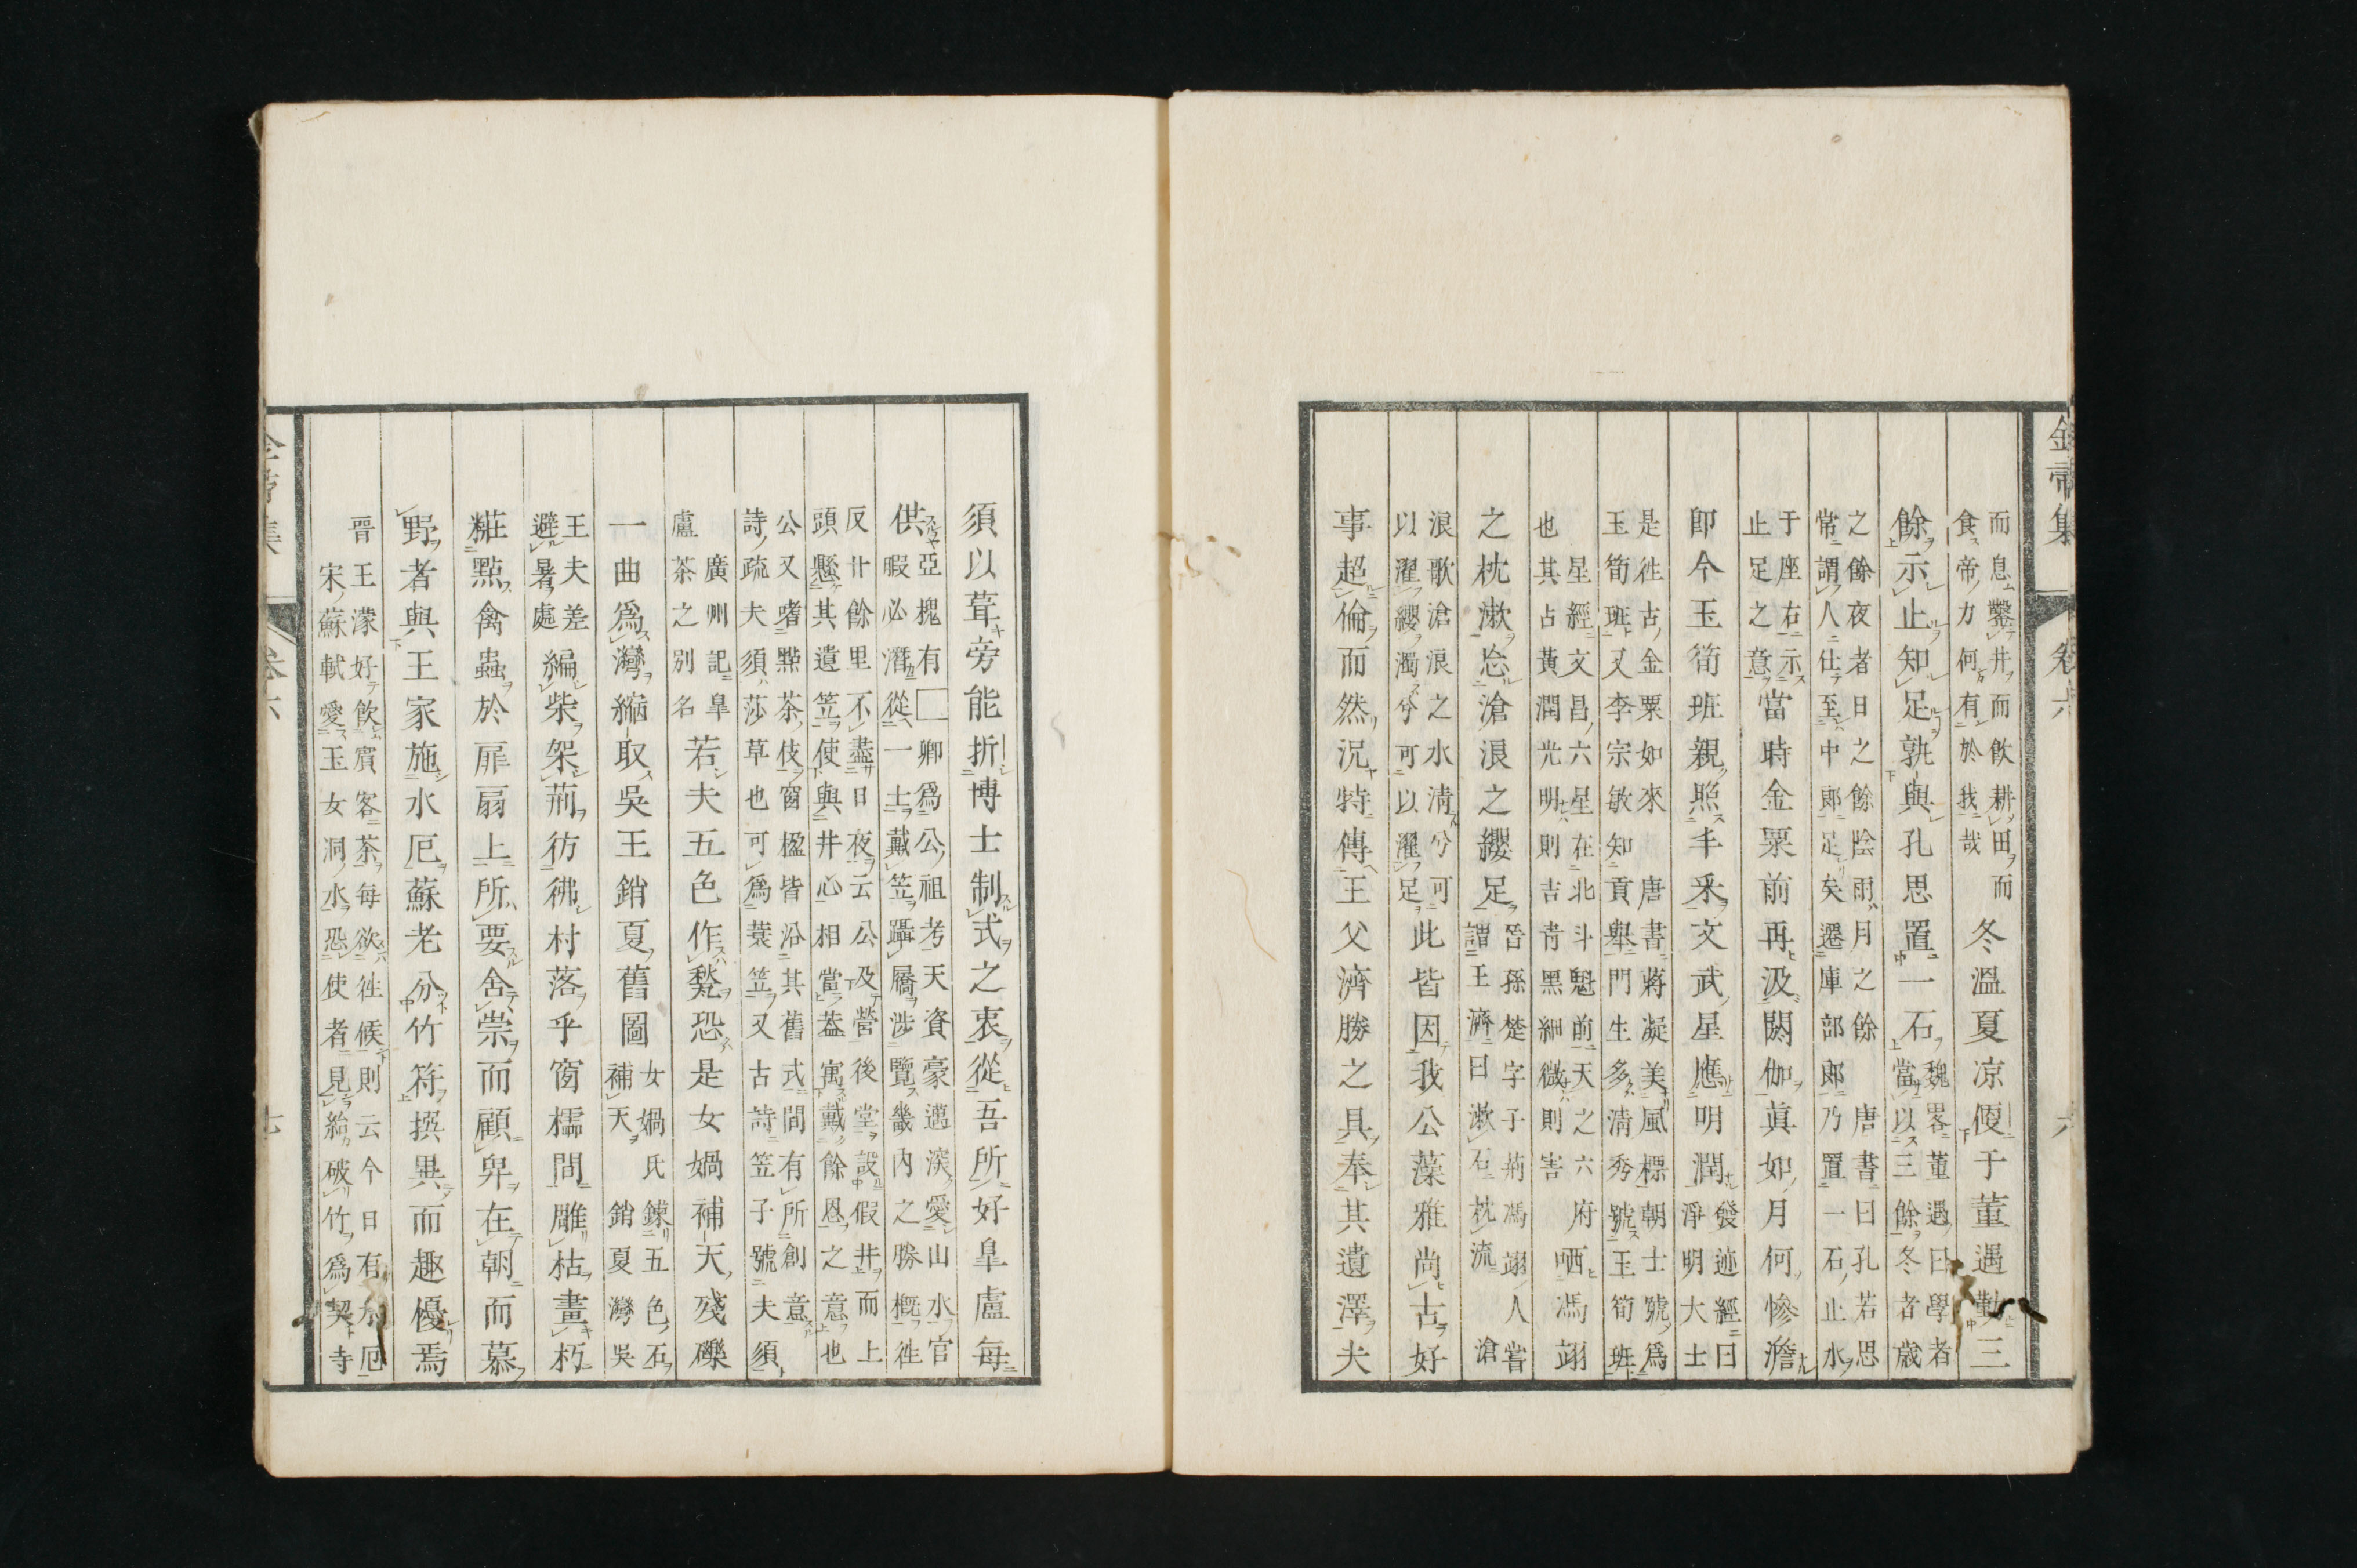 而息鑿井而飲耕田而
食帝力何有於我哉
冬溫夏凉㑰于董遇勤三
餘示止知足孰與孔思置一石
魏畧董遇曰學者
當以三餘冬者歲
之餘夜者日之餘陰雨月之餘
常謂人仕至中郎足矣遷庫部郎
唐書曰孔若思
乃置一石止水
于座右示
止足之意
當時金粟前再汲閼伽眞如月何慘澹
即今玉筍班親照手釆文武星應明潤
發迹經曰
淨明大士
是徃古金粟如來
玉筍班又李宗敏知
唐書蔣凝美風標朝士號爲
貢舉門生多淸秀號玉筍班
星經文昌六星在北斗魁前天之六府
也其占黃潤光明則吉靑黑細微則害
哂馮翊
之枕漱忩滄浪之纓足
晉孫楚字子荊馮翊人嘗
謂王濟曰漱石枕流
滄
浪歌滄浪之水淸兮可
以濯纓濁兮可以濯足
此皆因我公藻雅尚古好
事超倫而然況特傳王父濟勝之具奉其遺澤夫
金帚集 卷六 六
須以葺旁能折博士制式之衷從吾所好皐盧每
供
亞槐有□卿爲公祖考天資豪邁淡愛山水官
暇必潛從一士戴笠躡屩涉覽畿內之勝槪徃
反廿餘里不盡日夜云公及營後堂設假井而上
頭懸其遺笠使與井心相當葢寓戴餘恩之意也
公又嗜點茶伎窗楹皆沿其舊式間有所創意
詩疏夫須莎草也可爲蓑笠又古詩笠子號夫須
廣州記皐
盧茶之別名
若夫五色作甃恐是女媧補天殘礫
一曲爲灣縮取吳王銷夏舊圖
女媧氏鍊五色石
補天 銷夏灣吳
王夫差
避暑處
編柴架荊彷彿村落乎窗櫺間雕枯畫朽
糚點禽蟲於扉扇上所要舍崇而顧卑在朝而慕
野者與王家施水厄蘇老分竹符撰異而趣優焉
晉王濛好飮賓客茶每欲徃候則云今日有水厄
宋蘇軾愛玉女洞水恐使者見紿破竹爲契寺
卷六 七